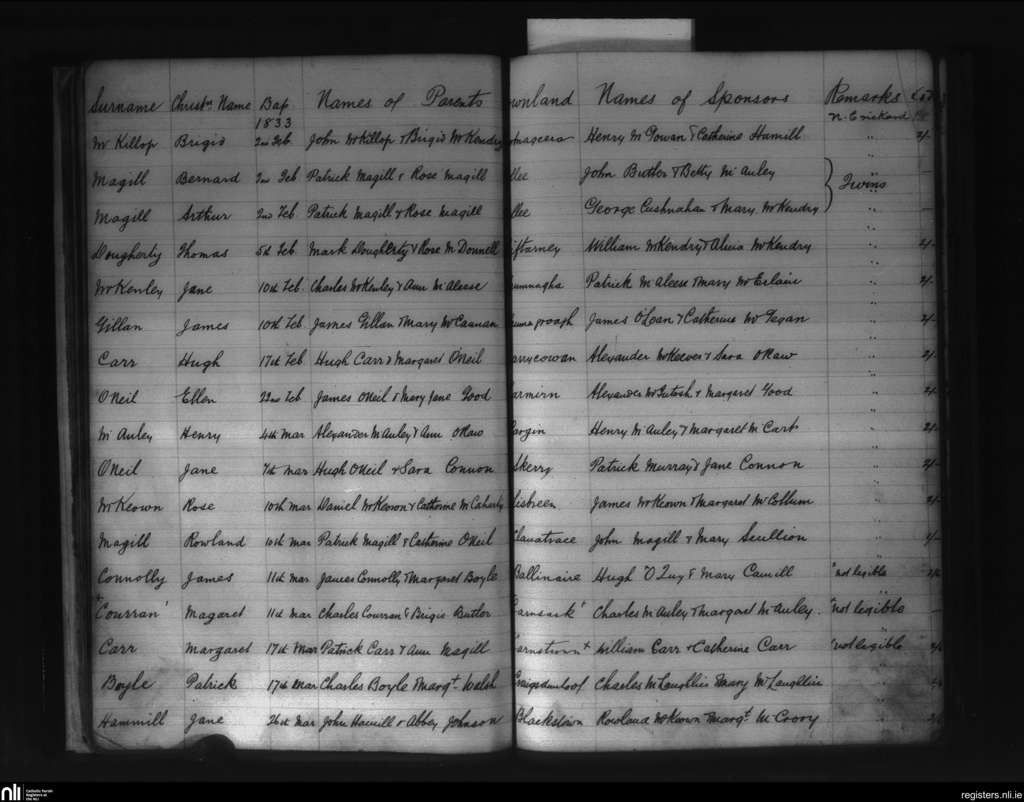 Surname Christn Name Bap Names of Parents ownland Names of Sponsors Remarks
1833 N. Erickard
McKillop Brigid 2nd Feb John McKillop & Brigid McKendry Henry McGowan & Catherine Hamill 2/-
Magill Bernard 2nd Feb Patrick Magill & Rose Magill llee John Butler & Betty McAuley " —
Twins
Magill Arthur 2nd Feb Patrick Magill & Rose Magill llee George Cushnahan & Mary McKendry " —
Dougherty Thomas 5th Feb Mark Dougherty & Rose McDonnell iftarney William McKendry & Alicia McKendry " 2/-
McKenley Jane 10th Feb Charles McKenley & Ann McAleese Patrick McAleese & Mary McErlain " 2/-
Gillan James 10th Feb James Gillan & Mary McCaanan James O'Loan & Catherine McGegan " 2/-
Carr Hugh 17th Feb Hugh Carr & Margaret O'Neil arrycowan Alexander McKeever & Sara O'Raw " 2/-
O'Neil Ellen 22nd Feb James O'Neil & Mary Jane Good armirn Alexander McIntosh & Margaret Good " 2/-
McAuley Henry 4th Mar Alexander McAuley & Ann O'Raw argin Henry McAuley & Margaret McCart " 2/-
O'Neil Jane 7th Mar Hugh O'Neil & Sara Connon Skerry Patrick Murray & Jane Connon " 2/-
McKeown Rose 10th Mar Daniel McKeown & Catherine McCaherty Lisbreen James McKeown & Margaret McCollum " 2/-
Magill Rowland 10th Mar Patrick Magill & Catherine O'Neil John Magill & Mary Scullion " 2/-
Connolly James 11th Mar James Connolly & Margaret Boyle Ballinaire Hugh O'Luy & Mary Camill "not legible
"Courran" Magaret 11th Mar Charles Courran & Brigid Butler Charles McAuley & Margaet McAuley. "not legible —
Carr Margaret 17th Mar Patrick Carr & Ann Magill arnstown + William Carr & Catherine Carr "not legible
Boyle Patrick 17th Mar Charles Boyle Margt. Walsh Charles McLaughlin & Mary McLaughlin "
Hammill Jane 26th Mar John Hamill & Abbey Johnson Blackstown Rowland McKeown & Margt. McCrory "
nli Catholic Parish Registers at the NLI
registers.nli.ie